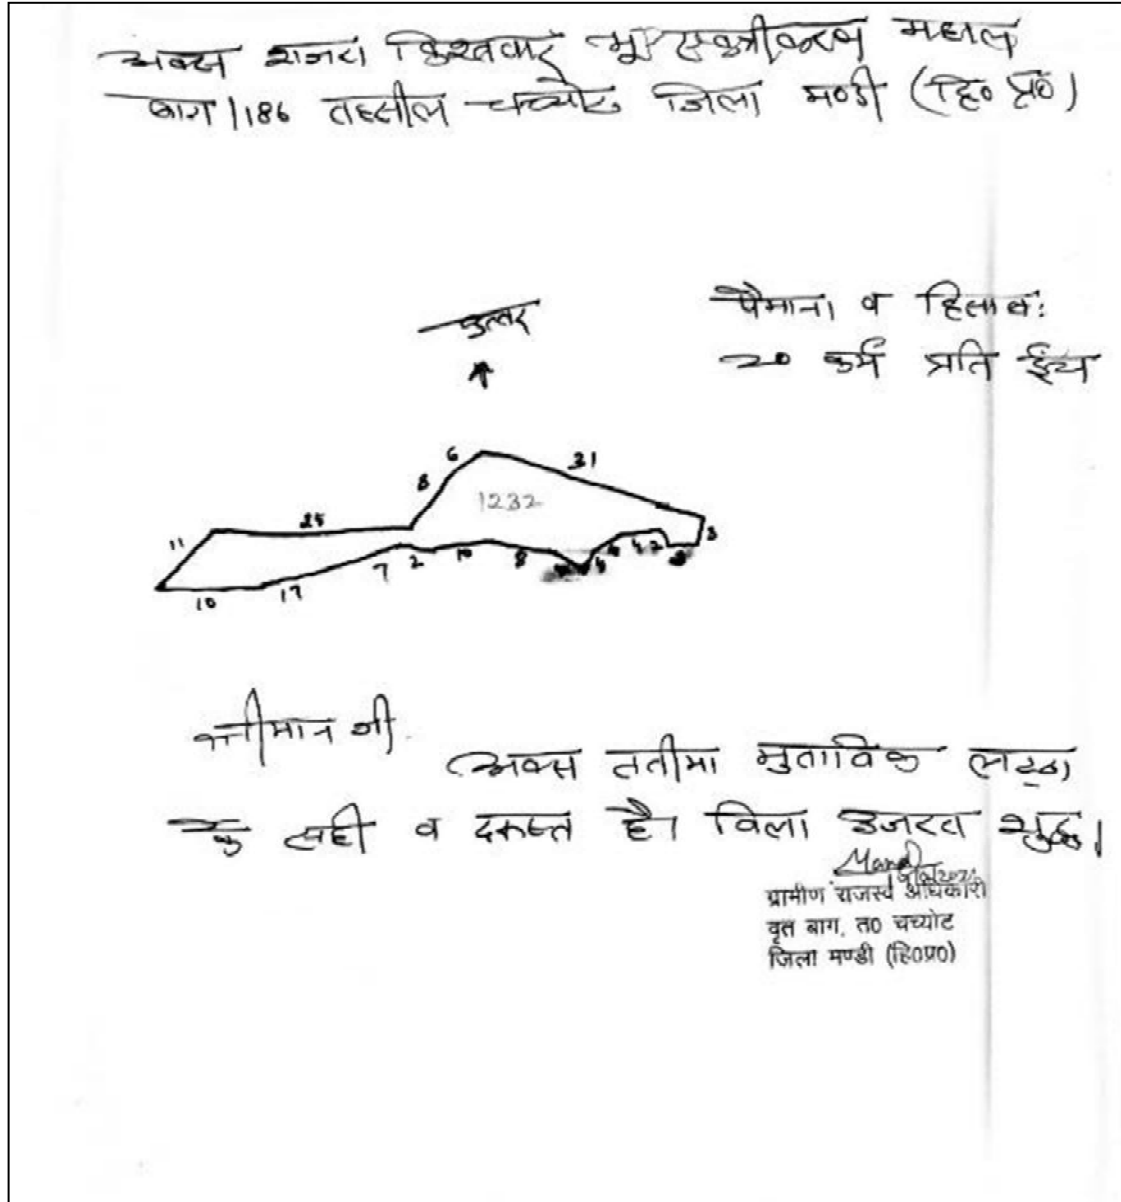 अक्स शजरा किश्तवार भू एकत्रीकरण महाल
बाग/186 तहसील चच्योट जिला मण्डी (हि० प्र०)
पैमाना व हिसाब:
उत्तर
20 कर्म प्रति ईंच
6
31
8
1232
25
11
3
10
17
7
2
10
8
4 2
श्रीमान जी.
अक्स ततीमा मुताबिक लट्ठा
के सही व दरुस्त है। बिला उजरत शुद्ध।
ग्रामीण राजस्व अधिकारी
वृत बाग, त० चच्योट
जिला मण्डी (हि०प्र०)